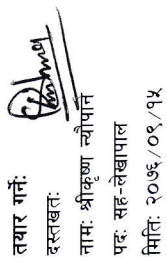 तयार गर्नेः
दस्तखतः
नामः श्रीकृष्ण न्यौपाने
पदः सह-लेखापाल
मितिः २०७६/०९/१५